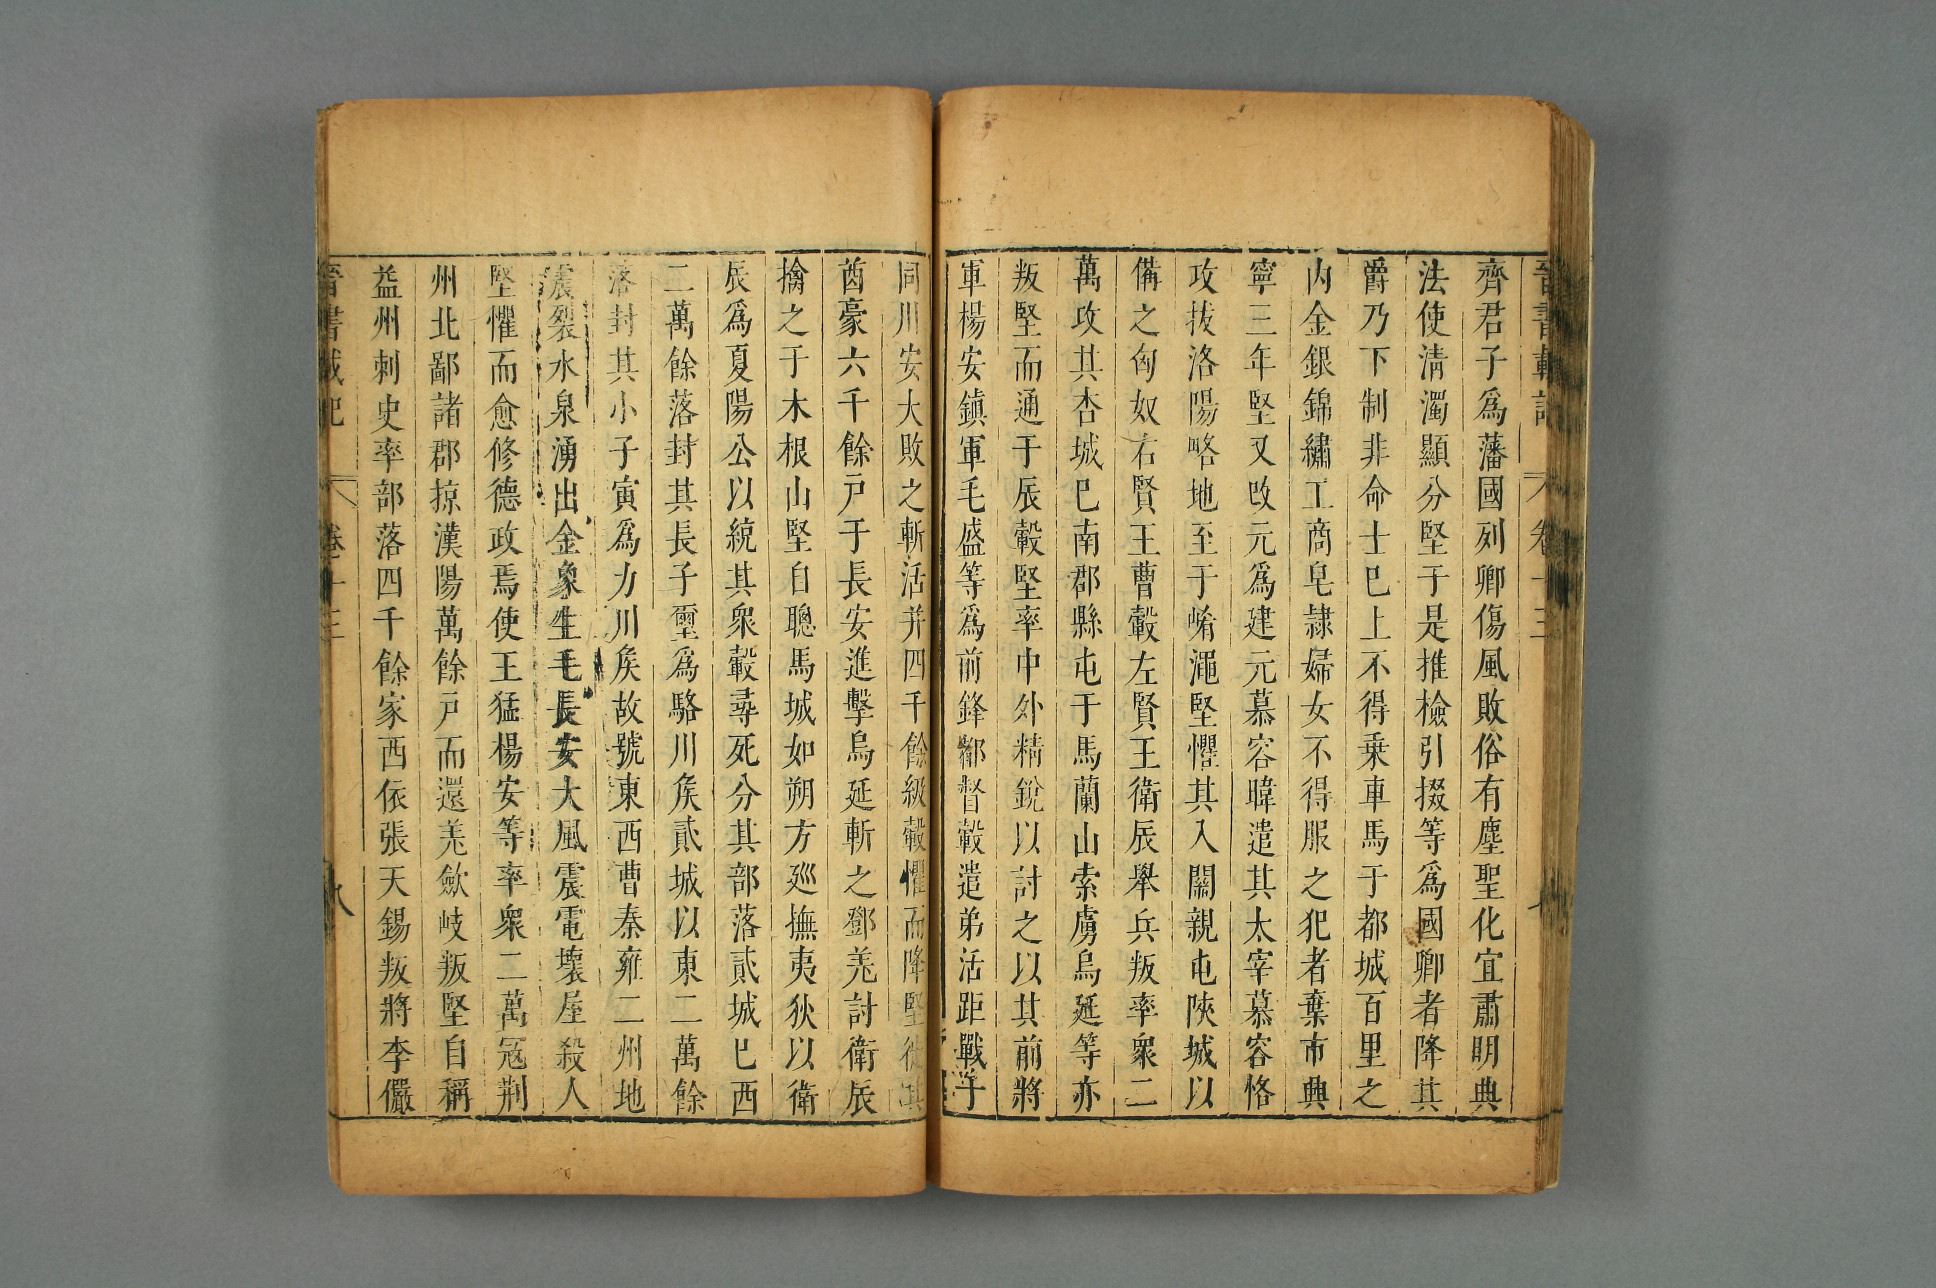 晉書載記 卷十三
齊君子爲藩國列卿傷風敗俗有塵聖化宜肅明典
法使清濁顯分堅于是推檢引掇等爲國卿者降其
爵乃下制非命士巳上不得乗車馬于都城百里之
内金銀錦繡工商皂隷婦女不得服之犯者棄市興
寧三年堅又改元爲建元慕容暐遣其太宰慕容恪
攻拔洛陽略地至于崤澠堅懼其入關親屯陝城以
備之匈奴右賢王曹轂左賢王衛辰舉兵叛率衆二
萬攻其杏城巳南郡縣屯于馬蘭山索虜烏延等亦
叛堅而通于辰轂堅率中外精銳以討之以其前將
軍楊安鎮軍毛盛等爲前鋒都督轂遣弟活距戰于
同川安大敗之斬活并四千餘級轂懼而降堅徙其
酋豪六千餘戸于長安進擊烏延斬之鄧羌討衛辰
擒之于木根山堅自驄馬城如朔方廵撫夷狄以衛
辰爲夏陽公以統其衆轂尋死分其部落貳城巳西
二萬餘落封其長子璽爲駱川矦貳城以東二萬餘
落封其小子寅爲力川矦故號東西曹秦雍二州地
震裂水泉湧出金象生毛長安大風震電壊屋殺人
堅懼而愈修德政焉使王猛楊安等率衆二萬冦荆
州北鄙諸郡掠漢陽萬餘戸而還羌歛岐叛堅自稱
益州刺史率部落四千餘家西依張天錫叛將李儼
晉書載記 卷十三 八